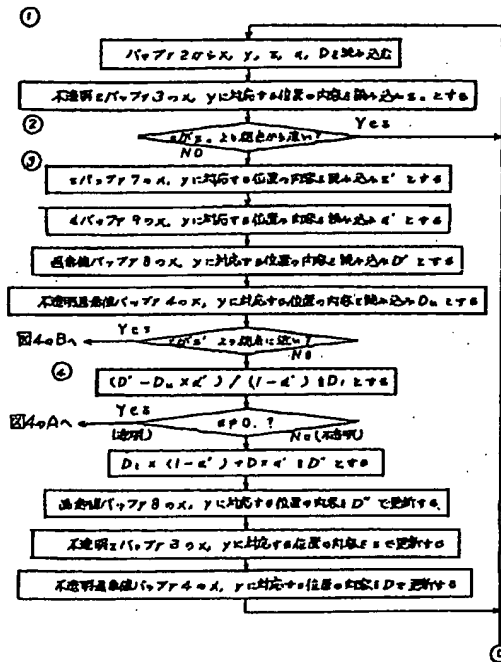 ①
バッファ2からx, y, z, α, Dを読み込む
不透明zバッファ3のx, yに対応する位置の内容を読み込みz₀とする
②
Yes
zがz₀より視点から遠い?
NO
③
zバッファ7のx, yに対応する位置の内容を読み込みz'とする
αバッファ9のx, yに対応する位置の内容を読み込みα'とする
バッファ8のx, yに対応する位置の内容を読み込みD'とする
バッファ4のx, yに対応する位置の内容を読み込みDuとする
Yes
図4のBへ
zがz'より視点に近い?
No
④
(D'-Du×α')/(1-α')をD₁とする
Yes
図4のAへ
α≠0.?
(透明)
No(不透明)
D₁×(1-α')+D×α'をD"とする
バッファ8のx, yに対応する位置の内容をD"で更新する。
不透明zバッファ3のx, yに対応する位置の内容をzで更新する
バッファ4のx, yに対応する位置の内容をDで更新する